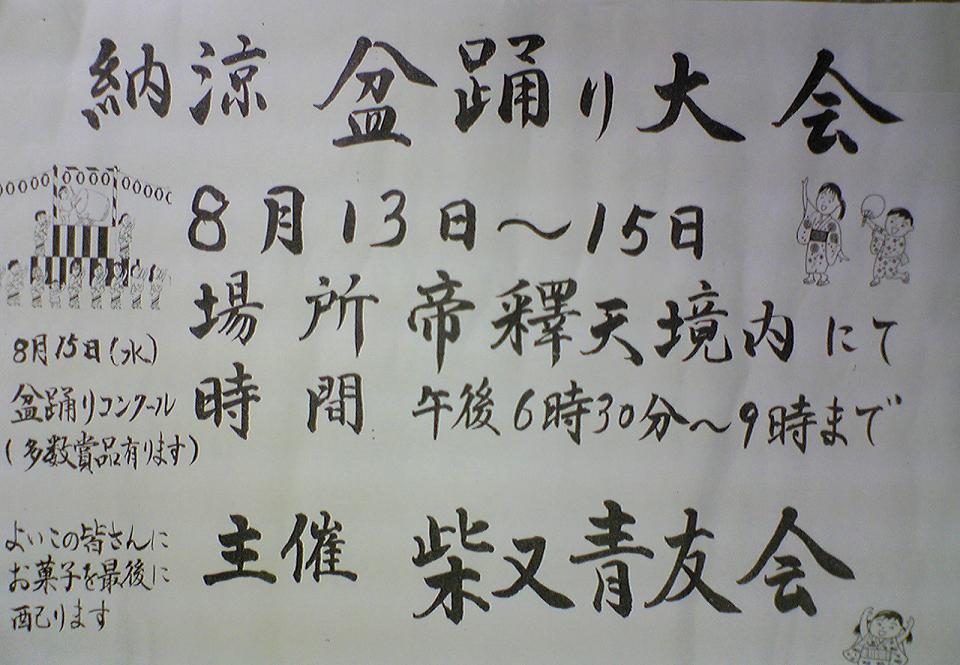 納涼 盆踊り大会
8月13日～15日
場所 帝釋天境内にて
時間 午後6時30分～9時まで
主催 柴又青友会
8月15日(水)
盆踊りコンクール
(多数賞品有ります)
よいこの皆さんに
お菓子を最後に
配ります